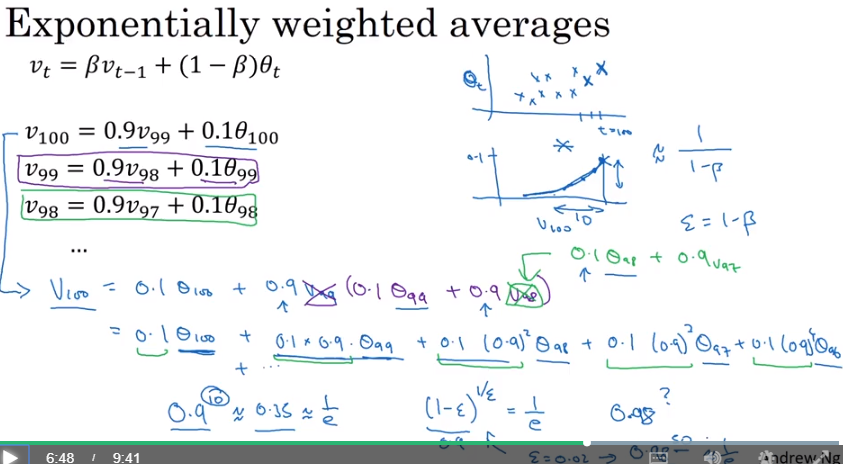 Exponentially weighted averages
v_t = βv_{t−1} + (1 − β)θ_t
θ_t
t=100
v_100 = 0.9v_99 + 0.1θ_100
v_99 = 0.9v_98 + 0.1θ_99
v_98 = 0.9v_97 + 0.1θ_98
...
0.1
10
V_100
≈ 1/(1-β)
ε = 1-β
0.1 θ_98 + 0.9 v_97
V_100 = 0.1 θ_100 + 0.9 v_99 (0.1 θ_99 + 0.9 v_98)
= 0.1 θ_100 + 0.1 × 0.9 · θ_99 + 0.1 (0.9)² θ_98 + 0.1 (0.9)³ θ_97 + 0.1 (0.9)⁴ θ_96
+ ...
0.9^10 ≈ 0.35 ≈ 1/e
(1-ε)^{1/ε} = 1/e
0.98 ?
0.9
ε = 0.02 → 0.98^50 ≈ 1/e
Andrew Ng
6:48 / 9:41